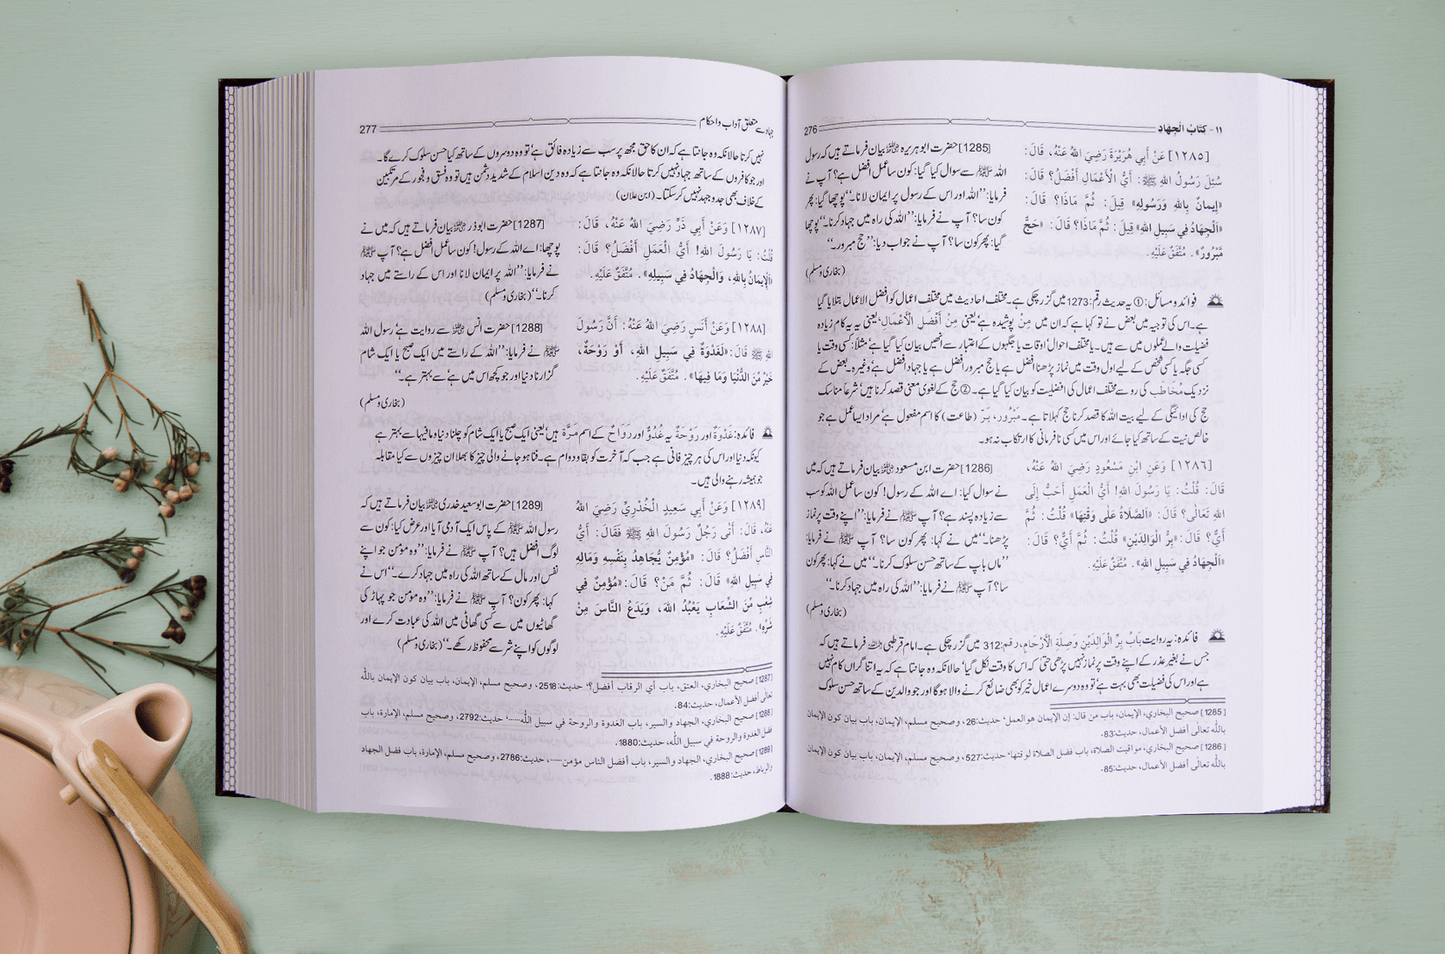 ۱۱ - كتابُ الْجِهَادِ
276
[١٢٨٥] عَنْ أَبِي هُرَيْرَةَ رَضِيَ اللهُ عَنْهُ، قَالَ:
سُئِلَ رَسُولُ اللهِ ﷺ: أَيُّ الْأَعْمَالِ أَفْضَلُ؟ قَالَ:
«إِيمَانٌ بِاللهِ وَرَسُولِهِ» قِيلَ: ثُمَّ مَاذَا؟ قَالَ:
«الْجِهَادُ فِي سَبِيلِ اللهِ» قِيلَ: ثُمَّ مَاذَا؟ قَالَ: «حَجٌّ
مَّبْرُورٌ». مُتَّفَقٌ عَلَيْهِ.
[1285] حضرت ابو ہریرہ ؓ بیان فرماتے ہیں کہ رسول
اللہ ﷺ سے سوال کیا گیا: کون سا عمل افضل ہے؟ آپ نے
فرمایا: ”اللہ اور اس کے رسول پر ایمان لانا۔“ پوچھا گیا: پھر
کون سا؟ آپ نے فرمایا: ”اللہ کی راہ میں جہاد کرنا۔“ پوچھا
گیا: پھر کون سا؟ آپ نے جواب دیا: ”حج مبرور۔“
(بخاری و مسلم)
فوائد و مسائل: ① یہ حدیث رقم: 1273 میں گزر چکی ہے۔ مختلف احادیث میں مختلف اعمال کو افضل الاعمال بتلایا گیا
ہے۔ اس کی توجیہ میں بعض نے تو کہا ہے کہ ان میں مِنْ پوشیدہ ہے، یعنی مِنْ أَفْضَلِ الْأَعْمَالِ، یعنی یہ یہ کام زیادہ
فضیلت والے عملوں میں سے ہیں۔ یا مختلف احوال، اوقات یا جگہوں کے اعتبار سے انھیں بیان کیا گیا ہے، مثلاً: کسی وقت یا
کسی جگہ یا کسی شخص کے لیے اول وقت میں نماز پڑھنا افضل ہے یا حج مبرور افضل ہے یا جہاد افضل ہے، وغیرہ۔ بعض کے
نزدیک مُخَاطَب کی رو سے مختلف اعمال کی افضلیت کو بیان کیا گیا ہے۔ ② حج کے لغوی معنی قصد کرنا ہیں، شرعاً مناسک
حج کی ادائیگی کے لیے بیت اللہ کا قصد کرنا حج کہلاتا ہے۔ مَبْرُور، بَرّ (طاعت) کا اسم مفعول ہے، مراد ایسا عمل ہے جو
خالص نیت کے ساتھ کیا جائے اور اس میں کسی نافرمانی کا ارتکاب نہ ہو۔
[١٢٨٦] وَعَنِ ابْنِ مَسْعُودٍ رَضِيَ اللهُ عَنْهُ،
قَالَ: قُلْتُ: يَا رَسُولَ اللهِ! أَيُّ الْعَمَلِ أَحَبُّ إِلَى
اللهِ تَعَالَى؟ قَالَ: «الصَّلَاةُ عَلَى وَقْتِهَا» قُلْتُ: ثُمَّ
أَيُّ؟ قَالَ: «بِرُّ الْوَالِدَيْنِ» قُلْتُ: ثُمَّ أَيُّ؟ قَالَ:
«الْجِهَادُ فِي سَبِيلِ اللهِ». مُتَّفَقٌ عَلَيْهِ.
[1286] حضرت ابن مسعود ؓ بیان فرماتے ہیں کہ میں
نے سوال کیا: اے اللہ کے رسول! کون سا عمل اللہ کو سب
سے زیادہ پسند ہے؟ آپ ﷺ نے فرمایا: ”اپنے وقت پر نماز
پڑھنا۔“ میں نے کہا: پھر کون سا؟ آپ نے فرمایا:
”ماں باپ کے ساتھ حسن سلوک کرنا۔“ میں نے کہا: پھر کون
سا؟ آپ ﷺ نے فرمایا: ”اللہ کی راہ میں جہاد کرنا۔“
(بخاری و مسلم)
فائدہ: یہ روایت بابُ بِرِّ الْوَالِدَيْنِ وَصِلَةِ الْأَرْحَامِ، رقم: 312 میں گزر چکی ہے۔ امام قرطبی فرماتے ہیں کہ
جس نے بغیر عذر کے اپنے وقت پر نماز نہیں پڑھی حتی کہ اس کا وقت نکل گیا، حالانکہ وہ جانتا ہے کہ یہ اتنا گراں کام نہیں
ہے اور اس کی فضیلت بھی بہت ہے، تو وہ دوسرے اعمال خیر کو بھی ضائع کرنے والا ہوگا اور جو والدین کے ساتھ حسن سلوک
[1285] صحيح البخاري، الإيمان، باب من قال: إن الإيمان هو العمل، حديث:26، وصحيح مسلم، الإيمان، باب بيان كون الإيمان
بالله تعالى أفضل الأعمال، حديث:83.
[1286] صحيح البخاري، مواقيت الصلاة، باب فضل الصلاة لوقتها، حديث:527، وصحيح مسلم، الإيمان، باب بيان كون الإيمان
بالله تعالى أفضل الأعمال، حديث:85.
جہاد سے متعلق آداب و احکام
277
نہیں کرتا حالانکہ وہ جانتا ہے کہ ان کا حق مجھ پر سب سے زیادہ فائق ہے، تو وہ دوسروں کے ساتھ کیا حسن سلوک کرے گا۔
اور جو کافروں کے ساتھ جہاد نہیں کرتا حالانکہ وہ جانتا ہے کہ وہ دین اسلام کے شدید دشمن ہیں تو وہ فسق و فجور کے مرتکبین
کے خلاف بھی جدوجہد نہیں کر سکتا۔ (ابن علان)
[١٢٨٧] وَعَنْ أَبِي ذَرٍّ رَضِيَ اللهُ عَنْهُ، قَالَ:
قُلْتُ: يَا رَسُولَ اللهِ! أَيُّ الْعَمَلِ أَفْضَلُ؟ قَالَ:
«الْإِيمَانُ بِاللهِ، وَالْجِهَادُ فِي سَبِيلِهِ». مُتَّفَقٌ عَلَيْهِ.
[1287] حضرت ابوذر ؓ بیان فرماتے ہیں کہ میں نے
پوچھا: اے اللہ کے رسول! کون سا عمل افضل ہے؟ آپ ﷺ
نے فرمایا: ”اللہ پر ایمان لانا اور اس کے راستے میں جہاد
کرنا۔“ (بخاری و مسلم)
[١٢٨٨] وَعَنْ أَنَسٍ رَضِيَ اللهُ عَنْهُ: أَنَّ رَسُولَ
اللهِ ﷺ قَالَ: «لَغَدْوَةٌ فِي سَبِيلِ اللهِ، أَوْ رَوْحَةٌ،
خَيْرٌ مِّنَ الدُّنْيَا وَمَا فِيهَا». مُتَّفَقٌ عَلَيْهِ.
[1288] حضرت انس ؓ سے روایت ہے، رسول اللہ
ﷺ نے فرمایا: ”اللہ کے راستے میں ایک صبح یا ایک شام
گزارنا دنیا اور جو کچھ اس میں ہے، سے بہتر ہے۔“
(بخاری و مسلم)
فائدہ: غَدْوَةٌ اور رَوْحَةٌ یہ غُدُوٌّ اور رَوَاحٌ کے اسم مَرَّة ہیں، یعنی ایک صبح یا ایک شام کو چلنا دنیا و مافیہا سے بہتر ہے
کیونکہ دنیا اور اس کی ہر چیز فانی ہے جب کہ آخرت کو بقا و دوام ہے۔ فنا ہو جانے والی چیز کا بھلا ان چیزوں سے کیا مقابلہ
جو ہمیشہ رہنے والی ہیں۔
[١٢٨٩] وَعَنْ أَبِي سَعِيدٍ الْخُدْرِيِّ رَضِيَ اللهُ
عَنْهُ، قَالَ: أَتَى رَجُلٌ رَسُولَ اللهِ ﷺ فَقَالَ: أَيُّ
النَّاسِ أَفْضَلُ؟ قَالَ: «مُؤْمِنٌ يُجَاهِدُ بِنَفْسِهِ وَمَالِهِ
فِي سَبِيلِ اللهِ» قَالَ: ثُمَّ مَنْ؟ قَالَ: «مُؤْمِنٌ فِي
شِعْبٍ مِّنَ الشِّعَابِ يَعْبُدُ اللهَ، وَيَدَعُ النَّاسَ مِنْ
شَرِّهِ». مُتَّفَقٌ عَلَيْهِ.
[1289] حضرت ابوسعید خدری ؓ بیان فرماتے ہیں کہ
رسول اللہ ﷺ کے پاس ایک آدمی آیا اور عرض کیا: کون سے
لوگ افضل ہیں؟ آپ ﷺ نے فرمایا: ”وہ مومن جو اپنے
نفس اور مال کے ساتھ اللہ کی راہ میں جہاد کرے۔“ اس نے
کہا: پھر کون؟ آپ ﷺ نے فرمایا: ”وہ مومن جو پہاڑ کی
گھاٹیوں میں سے کسی گھاٹی میں اللہ کی عبادت کرے اور
لوگوں کو اپنے شر سے محفوظ رکھے۔“ (بخاری و مسلم)
[1287] صحيح البخاري، العتق، باب أي الرقاب أفضل؟، حديث:2518، وصحيح مسلم، الإيمان، باب بيان كون الإيمان بالله
تعالى أفضل الأعمال، حديث:84.
[1288] صحيح البخاري، الجهاد والسير، باب الغدوة والروحة في سبيل الله.....، حديث:2792، وصحيح مسلم، الإمارة، باب
فضل الغدوة والروحة في سبيل الله، حديث:1880.
[1289] صحيح البخاري، الجهاد والسير، باب أفضل الناس مؤمن.....، حديث:2786، وصحيح مسلم، الإمارة، باب فضل الجهاد
والرباط، حديث:1888.